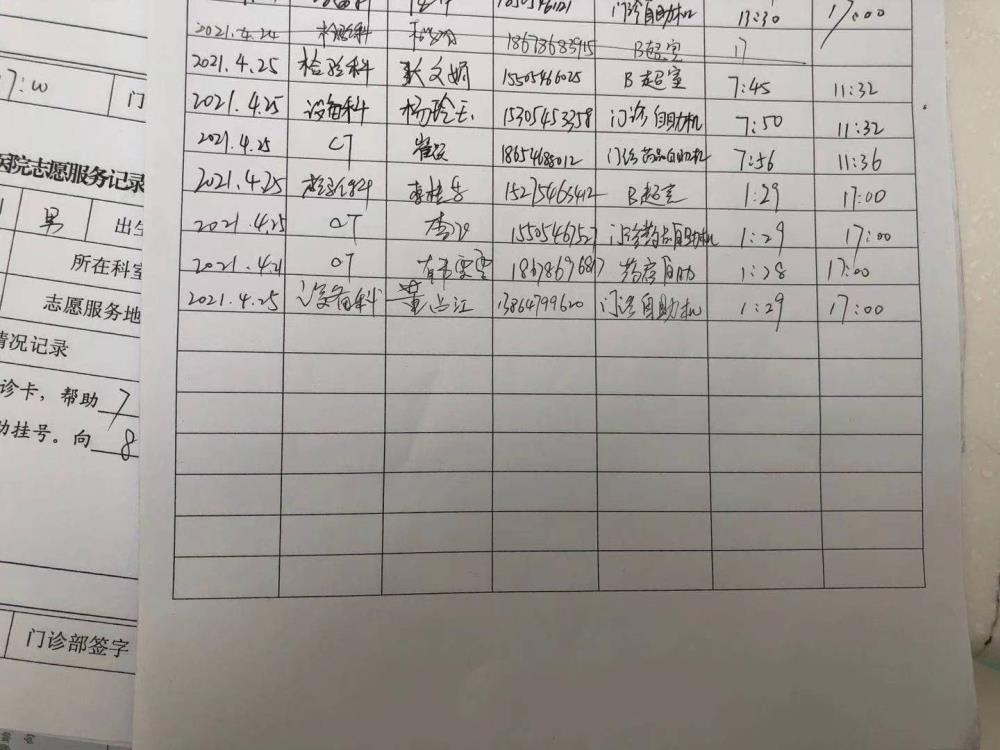 13:30 17:00
2021.4.24 检验科 B超室 17
2021.4.25 检验科 张文娟 15505466025 B超室 7:45 11:32
2021.4.25 设备科 杨玲玉 15305453358 门诊自助机 7:50 11:32
2021.4.25 CT 18654685012 门诊药品自助机 7:56 11:36
2021.4.25 15275465412 B超室 1:29 17:00
2021.4.25 CT 1550546752 自助机 1:29 17:00
2021.4.21 CT 自助 1:28 17:00
2021.4.25 设备科 董占江 13864799620 门诊自助机 1:29 17:00
门
医院志愿服务记录
男 出生
所在科室
志愿服务地
情况记录
诊卡，帮助 7
助挂号。向 8
门诊部签字